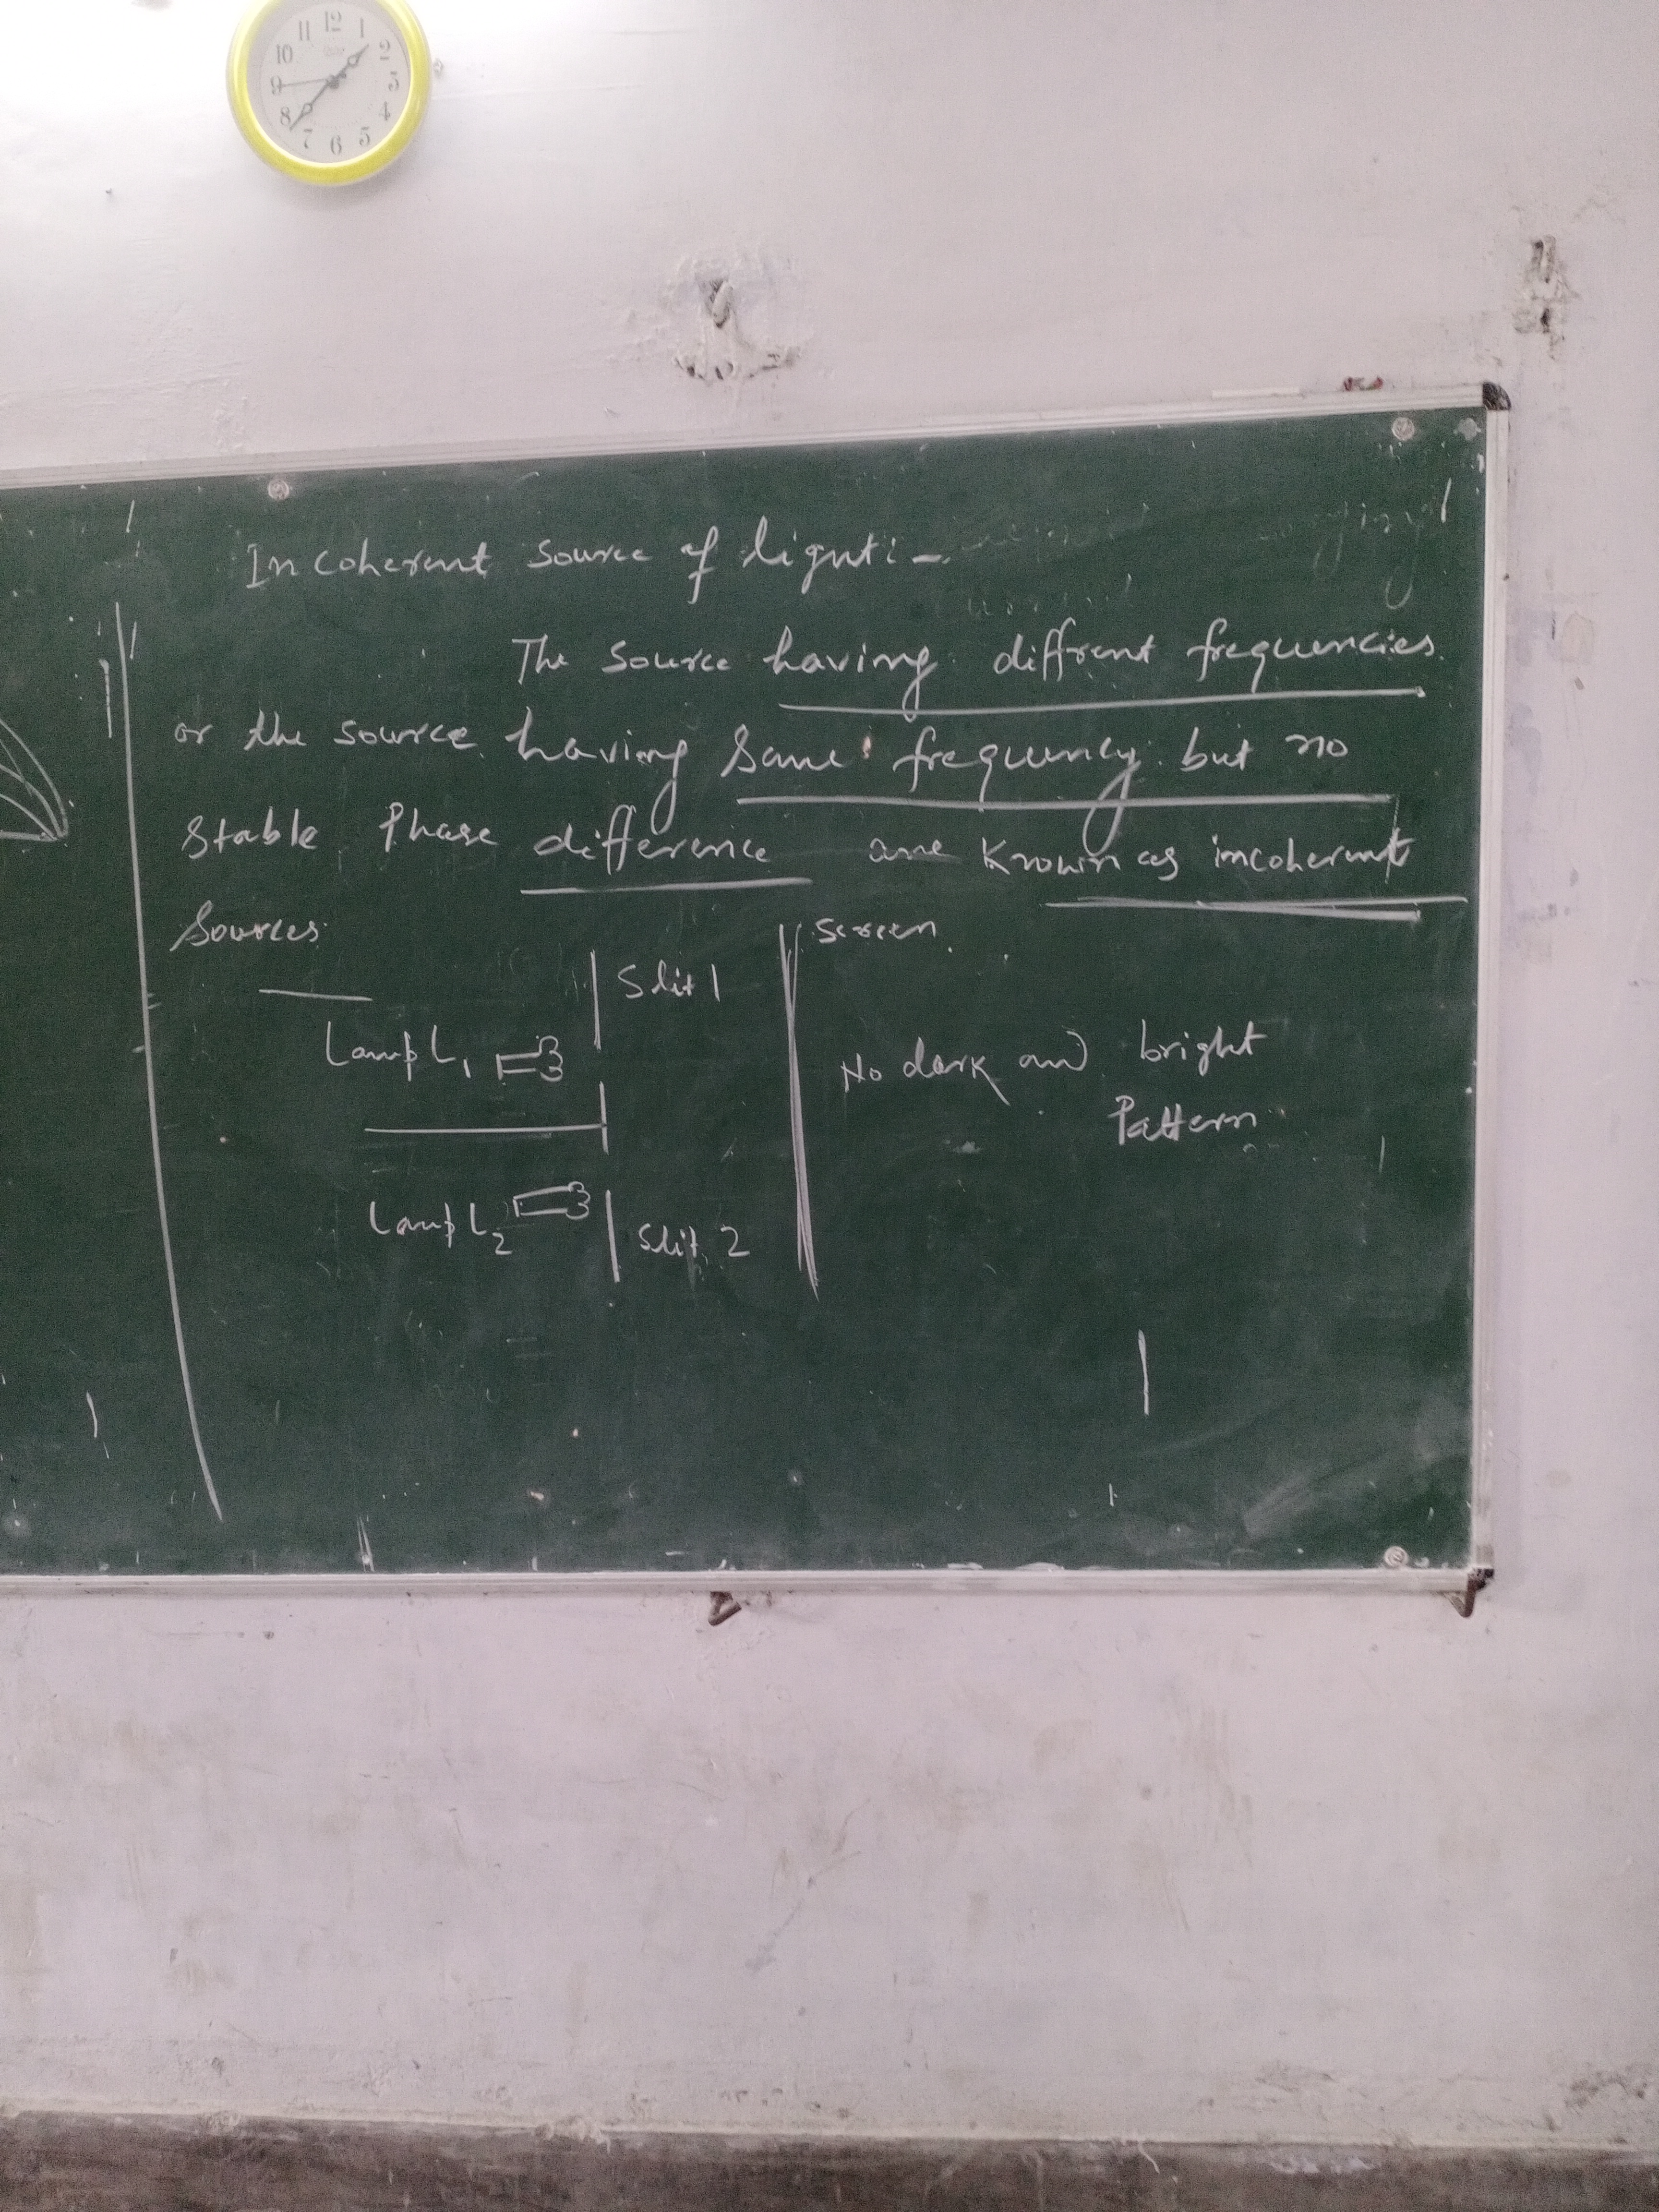 11 12 1
10 2
9 3
8 4
7 6 5
Incoherent source of light:-
The source having diffrent frequencies
or the source having same frequency but no
stable Phase difference are known as incoherent
Sources
screen
Slit 1
Lamp L1
No dark and bright
Pattern
Lamp L2
Slit 2